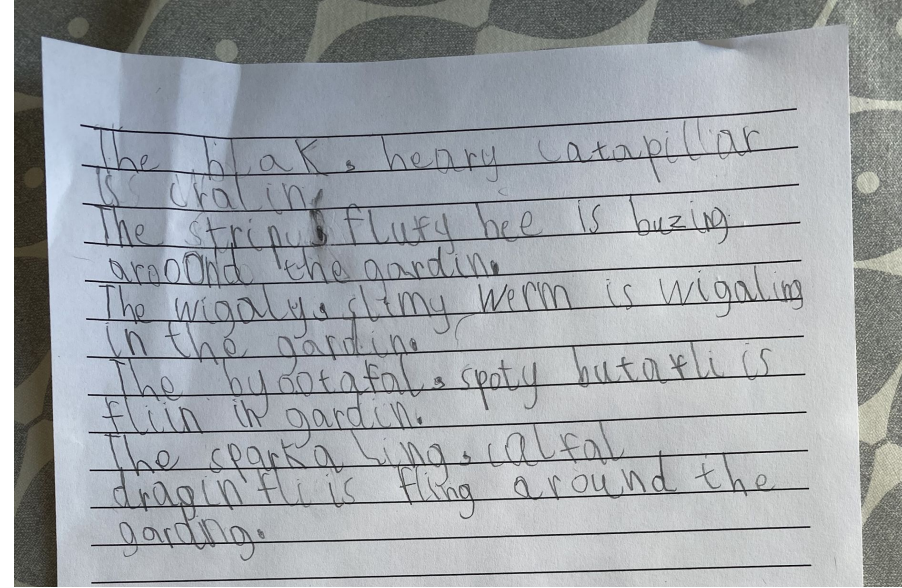 The blak, heary catapillar
is cralin.
The stripy, flufy bee is buzing
arooOnd the gardin.
The wigaly, slimy werm is wigaling
in the gardin.
The byootafal, spoty butafli is
fliin in gardin.
The sparka ling, calfal
dragin fli is fling around the
garding.